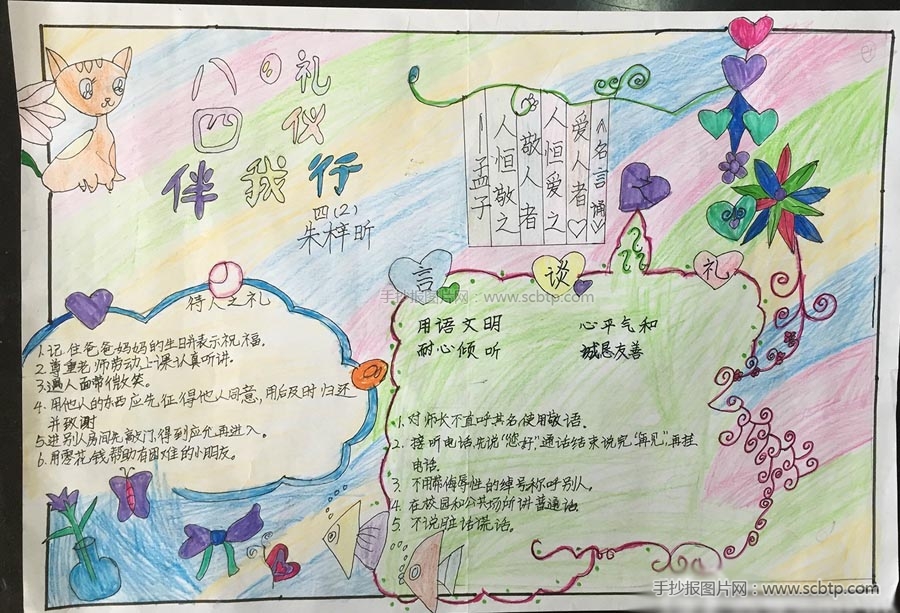 八 礼
四 仪
伴 我 行
四(2)
朱梓昕
《名言诵》
爱人者
人恒爱之
敬人者
人恒敬之
—孟子
待人之礼
1.记住爸爸妈妈的生日并表示祝福。
2.尊重老师劳动上课认真听讲。
3.遇人面带微笑。
4.用他人的东西应先征得他人同意,用后及时归还
并致谢
5.进别人房间先敲门,得到应允再进入。
6.用零花钱帮助有困难的小朋友。
言 谈 礼
手抄报图片网:www.scbtp.com
用语文明 心平气和
耐心倾听 诚恳友善
1.对师长不直呼其名使用敬语。
2.接听电话,先说“您好”,通话结束说完“再见”,再挂
电话。
3.不用带侮辱性的绰号称呼别人。
4.在校园和公共场所讲普通话.
5.不说脏话谎话。
手抄报图片网:www.scbtp.com